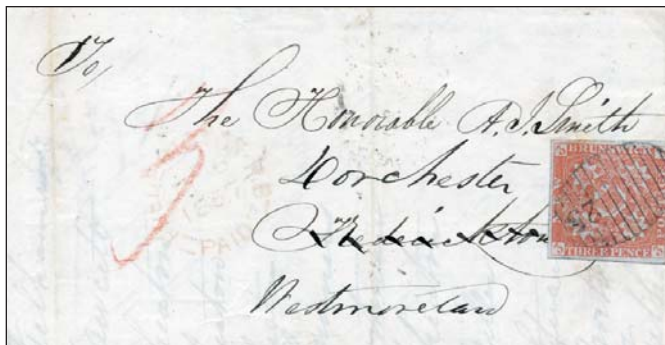 To,
The Honorable A.J. Smith
Dorchester
Fredrickton
Westmoreland
3
PAID
BRUNSWICK
25
THREE PENCE